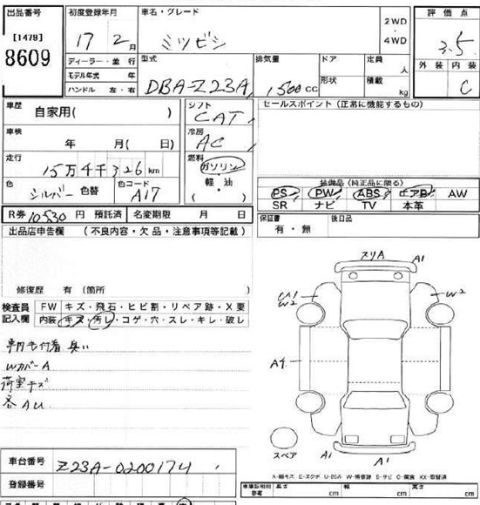 出品番号 初度登録年月 車名・グレード 2WD・4WD 評価点
[1479] 8609 17年 2月 ミツビシ 3.5
ディーラー・並行 型式 排気量 ドア 定員 人 外装 内装
モデル年式 年 形状 積載
ハンドル 左・右 DBA-Z23A 1500cc kg C
車歴 自家用( ) シフト CAT セールスポイント(正常に機能するもの)
車検 年 月( 日) 冷房 AC
走行 15万4千326km 燃料 ガソリン
軽・油
色 シルバー 色替 色コード A17 ( )
装備品(純正品に限る)
PS PW ABS エアB AW
SR ナビ TV 本革
R券 10530円 預託済 名変期限 月 日 保証書 有・無 後日品
出品店申告欄 (不良内容・欠品・注意事項等記載)
修復歴 有(箇所
検査員記入欄 FW キズ・飛石・ヒビ割・リペア跡・X要
内装 キズ・汚レ・コゲ・穴・スレ・キレ・破レ
WカバーA
荷室キズ
各AU
スリA A1
W2
W2
A4
A1
A1
スペア
車台番号 Z23A-0200174
登録番号
長さ cm 幅 cm 高さ cm